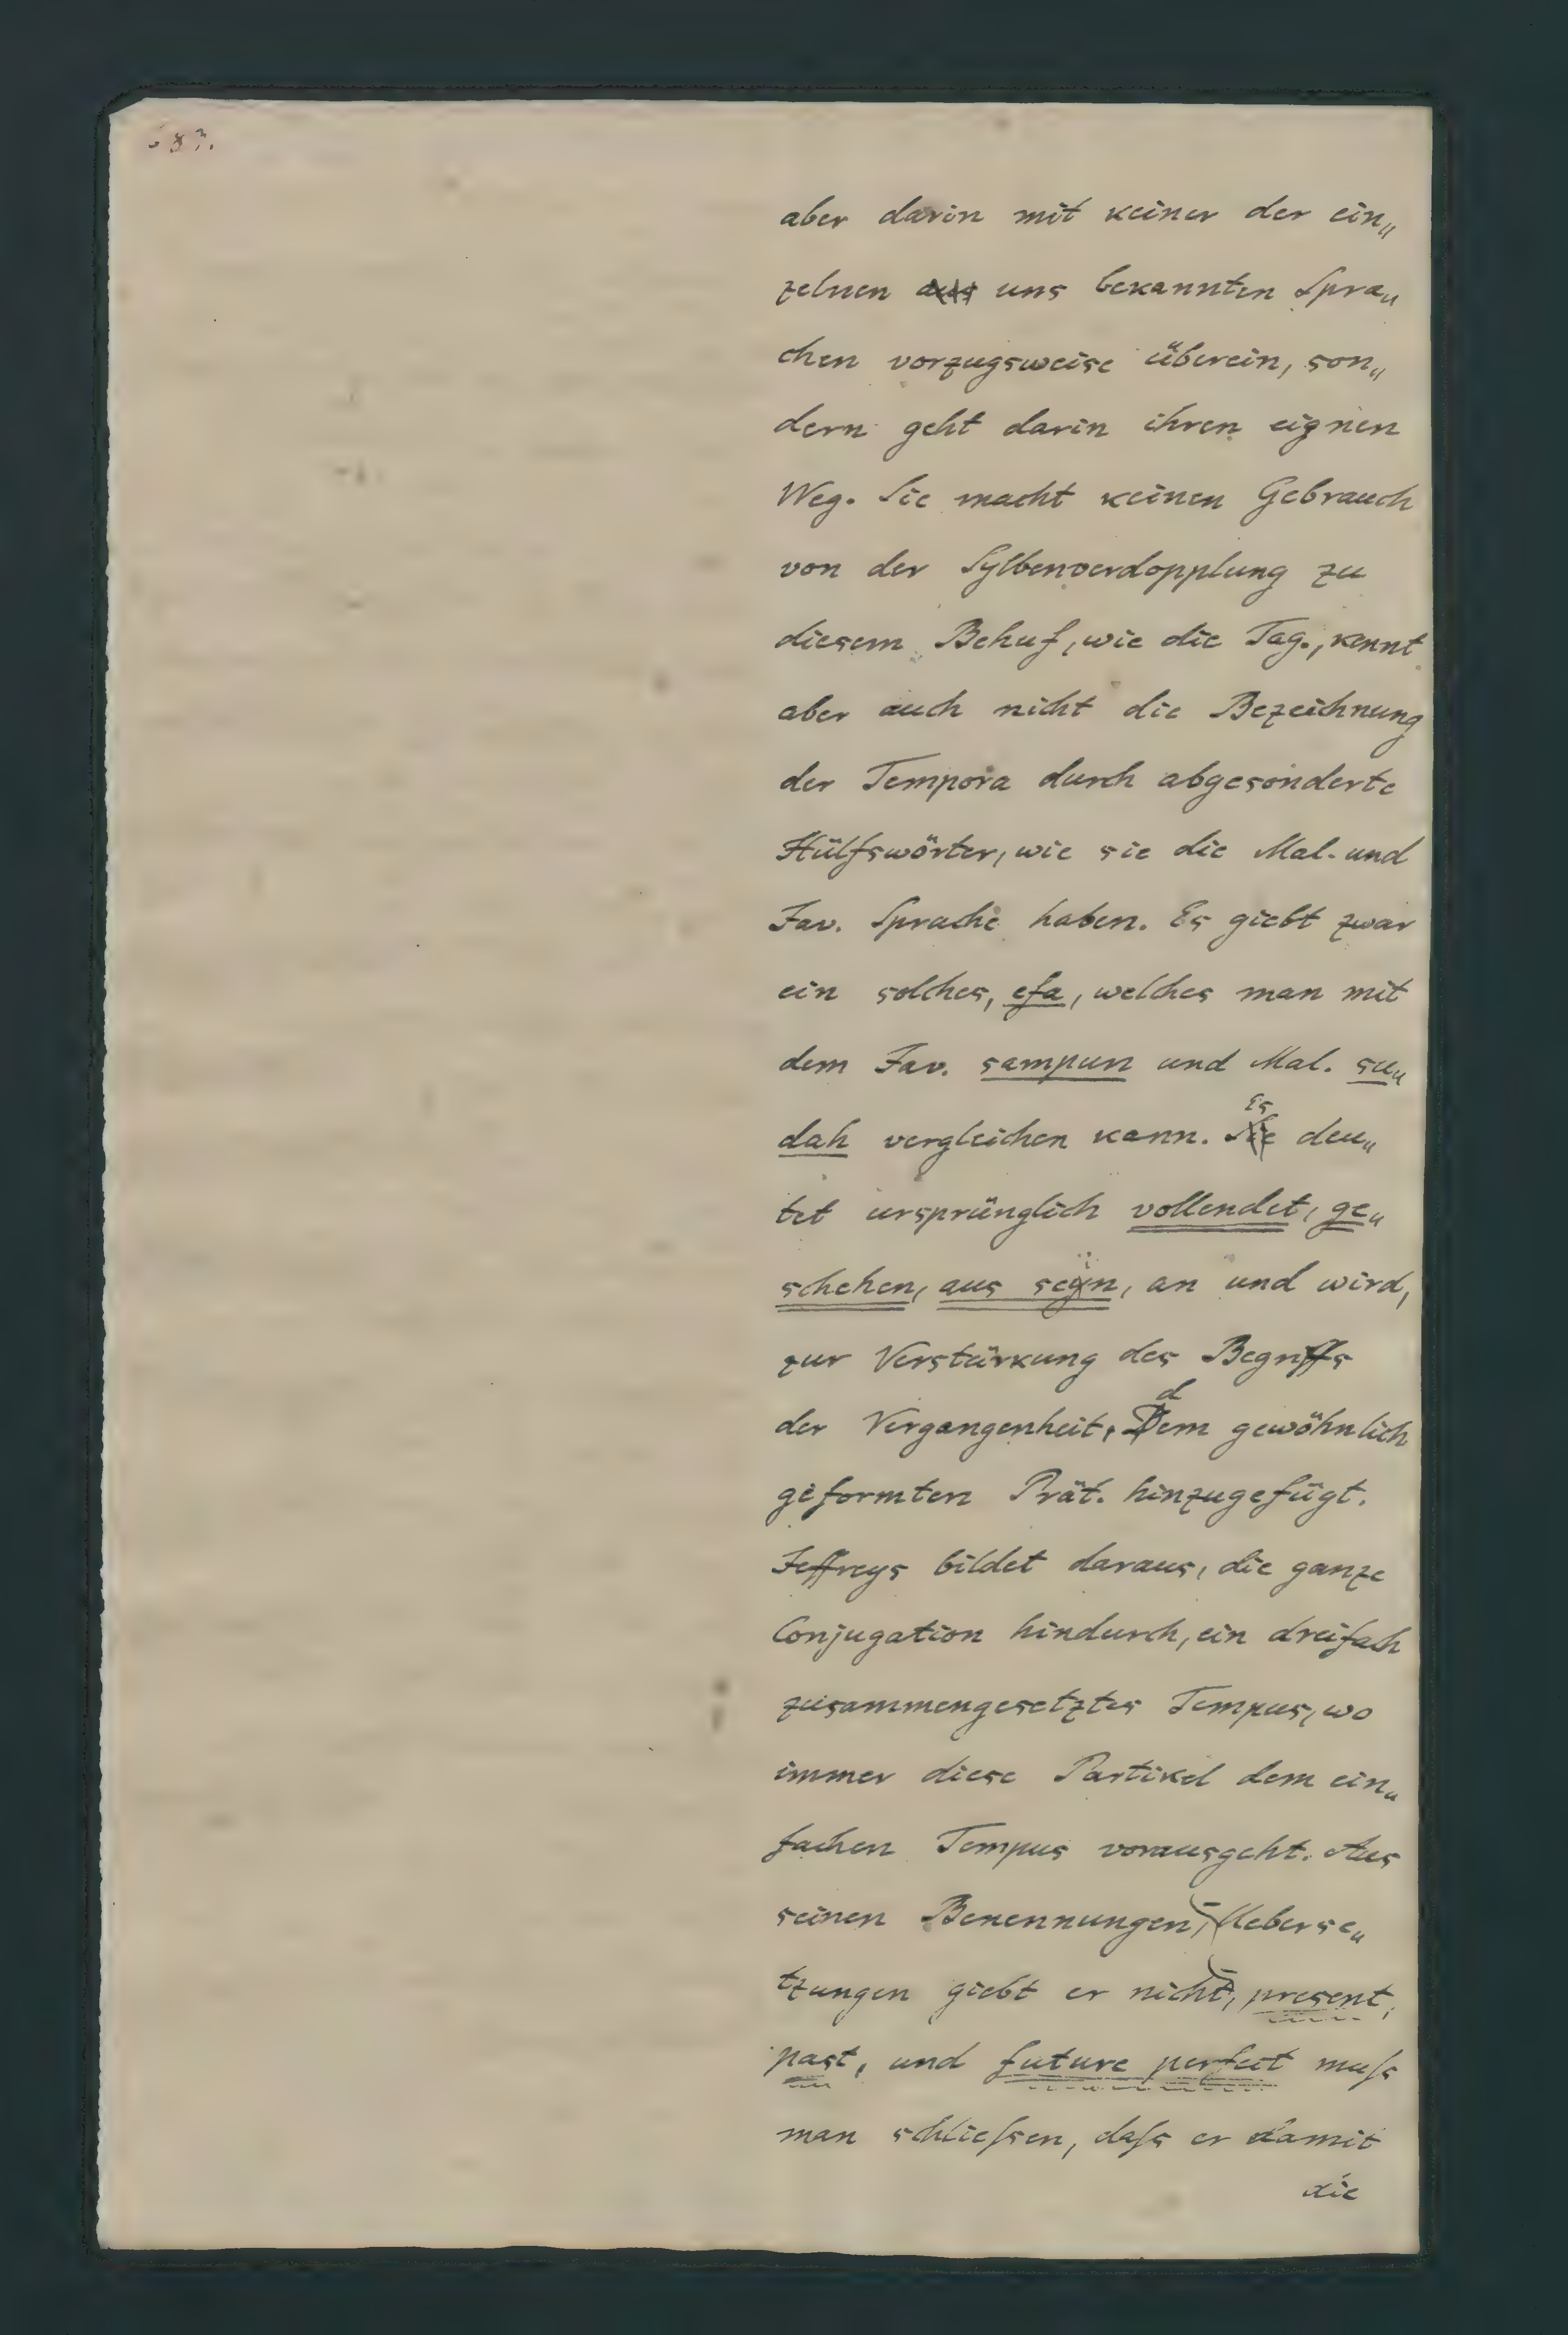 aber darin mit keiner der ein„
zelnen uns bekannten Spra„
chen vorzugsweise überein, son„
dern geht darin ihren eignen
Weg. Sie macht keinen Gebrauch
von der Sylbenverdopplung zu
diesem Behuf, wie die Tag., kennt
aber auch nicht die Bezeichnung
der Tempora durch abgesonderte
Hülfswörter, wie sie die Mal. und
Jav. Sprache haben. Es giebt zwar
ein solches, efa, welches man mit
dem Jav. sampun und Mal. su„
dah vergleichen kann. Es deu„
tet ursprünglich vollendet, ge„
schehen, aus sein, an und wird,
zur Verstärkung des Begriffs
der Vergangenheit, dem gewöhnlich
geformten Prät. hinzugefügt.
Jeffreys bildet daraus, die ganze
Conjugation hindurch, ein dreifach
zusammengesetztes Tempus, wo
immer diese Partikel dem ein„
fachen Tempus vorausgeht. Aus
seinen Benennungen, (Ueberse„
tzungen giebt er nicht), present,
past, und future perfect muſs
man schlieſsen, daſs er damit
die